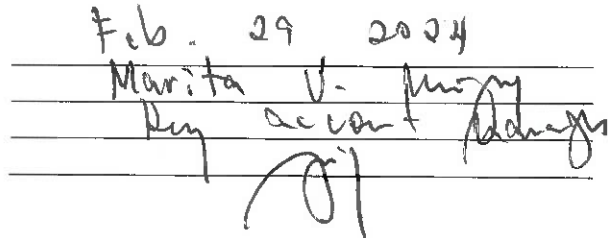 Feb. 29 2024
Marita V.
Key account Manager